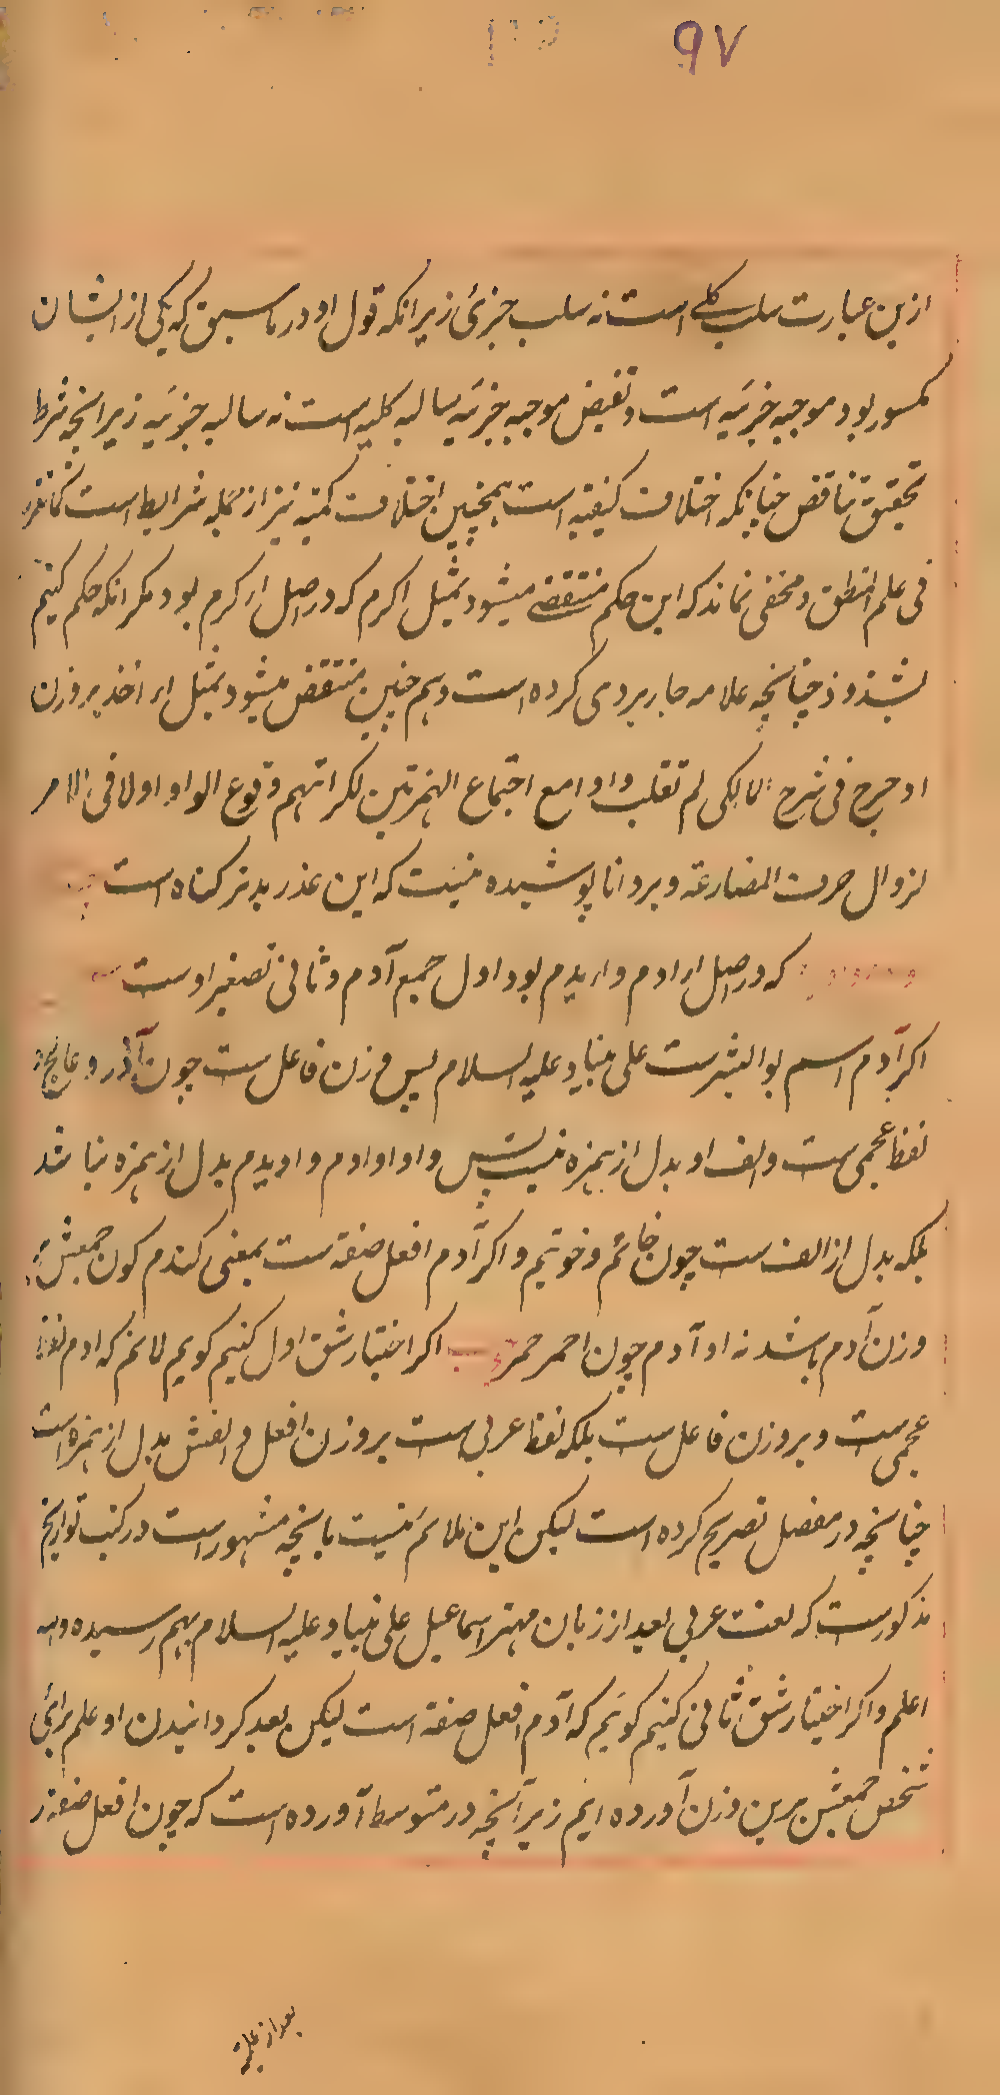 ۹۷
ازین عبارت سلب کلے است نه سلب جزئی زیرا نکه قول او در ما سبق که یکی از ایشان
مکسور بود موجبه جزئیه است و نقیض موجبه جزئیه سالبه کلیه است نه سالبه جزئیه زیرا نچه شرط
تحقیق تناقض چنانکه اختلاف کیفیة است همچنین اختلاف کمیة نیز از جمله شرایط است کما تقرر
فی علم المنطق و مخفی نماند که این حکم منتقضے میشود بمثل اکرم که در اصل اءکرم بود مکر انکه حکم کنیم
بشذوذ چنانچه علامه جاربردی کرده است و هم چنین منتقض میشود بمثل اءاخذ بر وزن
ادحرج فی شرح المالکی لم تقلب واوا مع اجتماع الهمزتین لکراتهم وقوع الواو اولا فی الامر
لزوال حرف المضارعة و بر دانا پوشیده نیست که این عذر بدتر کناه است
که در اصل اءادم و اءیدم بود اول جمع آدم و ثانی تصغیر اوست
اکر آدم اسم بو البشرست علی نبینا و علیه السلام پس وزن فاعل ست چون آذر و عابر
لفظ عجمی ست و الف او بدل از همزه نیست پس واو اوادم و اویدم بدل از همزه نباشد
بلکه بدل از الف ست چون خاتم و خوتیم و اکر آدم افعل صفة ست بمعنی کندم کون جمعش بر
وزن اُدم باشد نه اوآدم چون احمر حمر اکر اختیار شق اول کنیم کوئیم لانم که ادم لفظ
عجمی ست و بر وزن فاعل ست بلکه لفظ عربی ست بر وزن افعل و الفش بدل از همزه است
چنانچه در مفصل تصریح کرده است لیکن این ملائم نیست بانچه مشهور است در کتب تواریخ
مذکورست که لغت عربی بعد از زبان مهتر اسماعیل علی نبینا و علیه السلام بهم رسیده و الله
اعلم و اکر اختیار شق ثانی کنیم کوئیم که آدم افعل صفة است لیکن بعد کردانیدن او علم برای
شخص جمعش برین وزن آورده ایم زیرا نچه در متوسط آورده است که چون افعل صفة را
بعد از علمیة